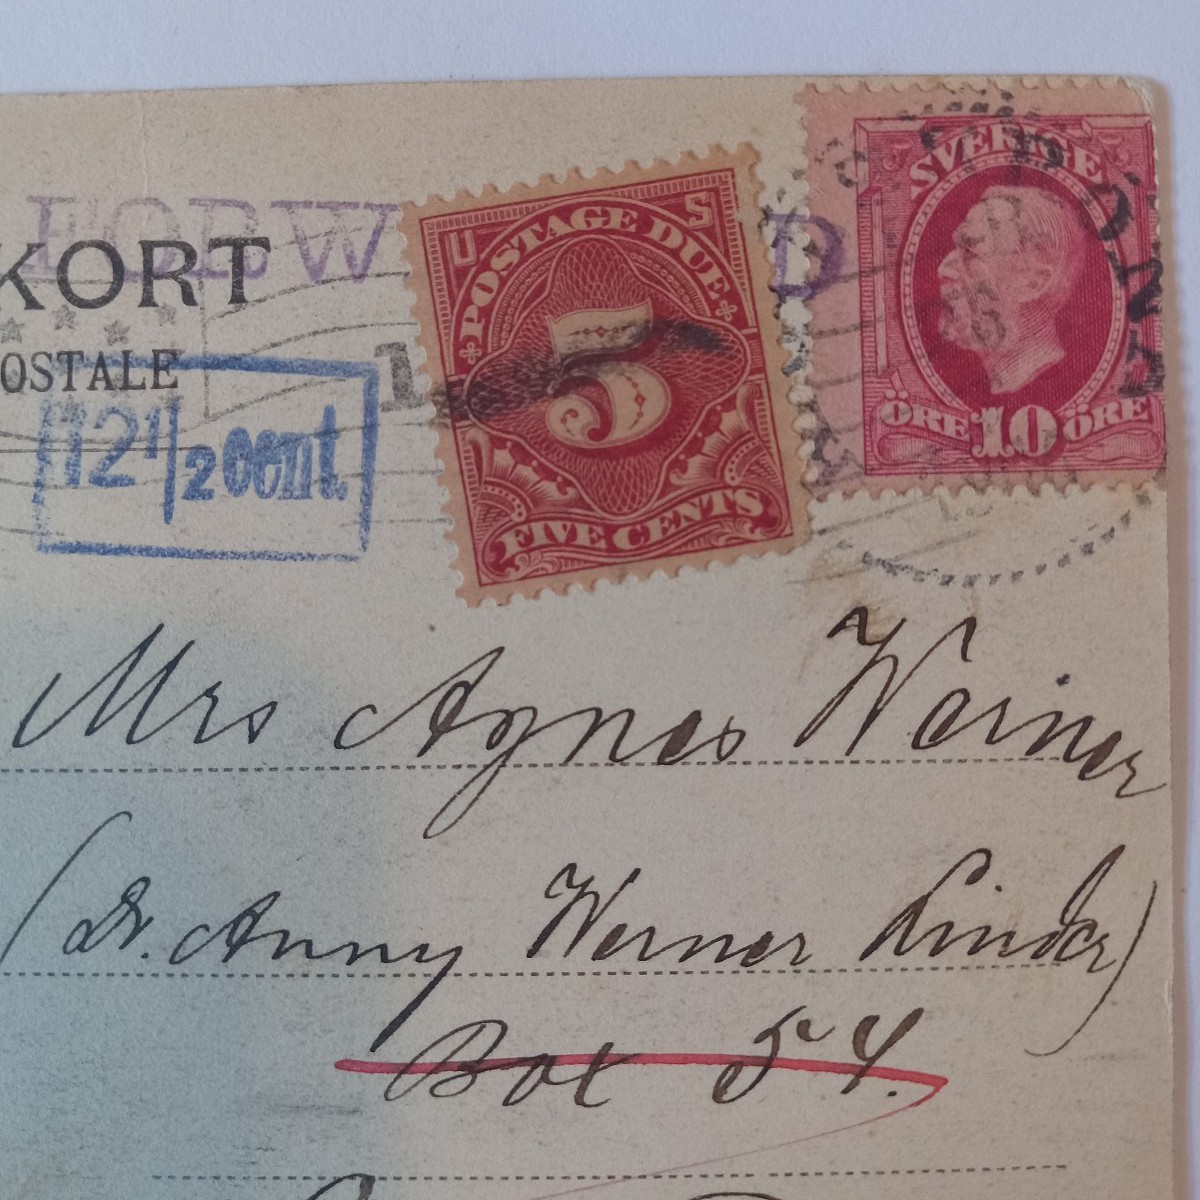 FORW D
KORT
OSTALE
12 1/2 cent
1
U S
POSTAGE DUE
5
FIVE CENTS
SVERIGE
ÖRE 10 ÖRE
Mrs Agnes Werner
(Dr. Anny Werner Linder)
Box 54.